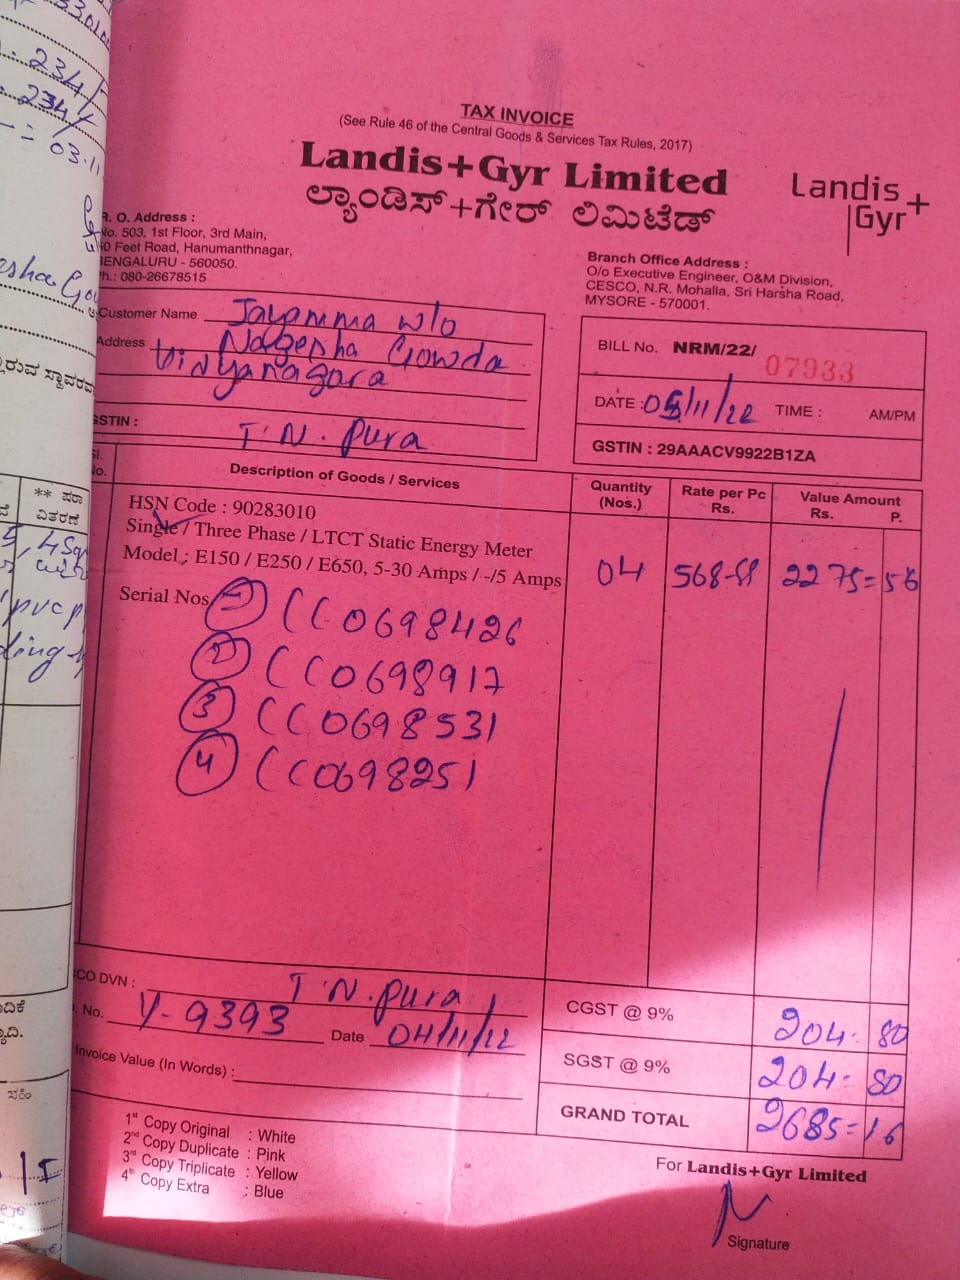 TAX INVOICE
(See Rule 46 of the Central Goods & Services Tax Rules, 2017)
Landis+Gyr Limited
ಲ್ಯಾಂಡಿಸ್+ಗೇರ್ ಲಿಮಿಟೆಡ್
Landis+
Gyr
R. O. Address :
No. 503, 1st Floor, 3rd Main,
0 Feet Road, Hanumanthnagar,
BENGALURU - 560050.
Ph.: 080-26678515
Branch Office Address :
O/o Executive Engineer, O&M Division,
CESCO, N.R. Mohalla, Sri Harsha Road,
MYSORE - 570001.
Customer Name Jayamma w/o
Address Nagesha Gowda
Vidyanagara
GSTIN : T. N. Pura
BILL No. NRM/22/ 07933
DATE : 05/11/22 TIME : AM/PM
GSTIN : 29AAACV9922B1ZA
Sl. No. Description of Goods / Services Quantity (Nos.) Rate per Pc Rs. Value Amount Rs. P.
HSN Code : 90283010
Single / Three Phase / LTCT Static Energy Meter
Model : E150 / E250 / E650, 5-30 Amps / -/5 Amps 04 568-89 2275=56
Serial Nos 1 CC0698426
2 CC0698917
3 CC0698531
4 CC0698251
CO DVN : T. N. Pura
No. Y-9393 Date 04/11/22
Invoice Value (In Words) :
CGST @ 9% 204. 80
SGST @ 9% 204= 80
GRAND TOTAL 2685=16
1st Copy Original : White
2nd Copy Duplicate : Pink
3rd Copy Triplicate : Yellow
4th Copy Extra : Blue
For Landis+Gyr Limited
Signature
234/-
234/
03.11
** ಪರಾ
ವಿತರಣೆ